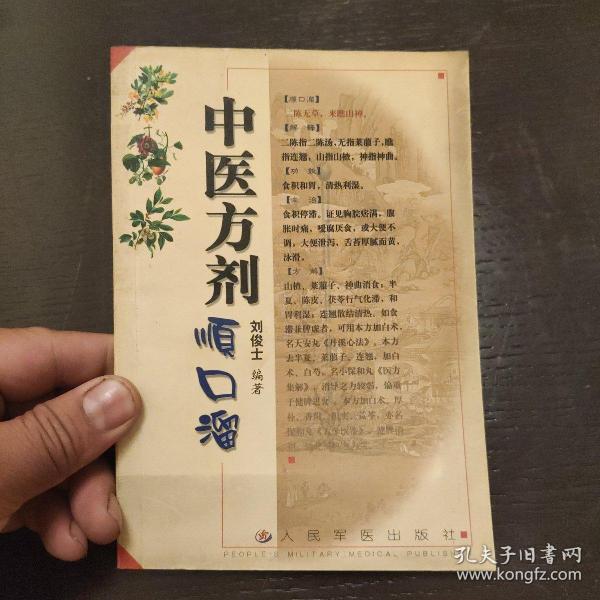 中医方剂
順口溜
刘俊士 编著
【顺口溜】
二陈无草，来瞧山神。
【解 释】
二陈指二陈汤，无指莱菔子，瞧
指连翘，山指山楂，神指神曲。
【功 效】
食积和胃，清热利湿。
【主 治】
食积停滞。证见胸脘痞满，腹
胀时痛，嗳腐厌食，或大便不
调，大便泄泻，舌苔厚腻而黄，
脉滑。
【方 解】
山楂、莱菔子、神曲消食；半
夏、陈皮、茯苓行气化滞，和
胃利湿；连翘散结清热。如食
滞兼脾虚者，可用本方加白术，
名大安丸《丹溪心法》。本方
去半夏、莱菔子、连翘，加白
术、白芍，名小保和丸《医方
集解》，消导之力较弱，偏重
于健脾思食。本方加白术、厚
朴、香附、枳实、黄芩，亦名
人民军医出版社
PEOPLE'S MILITARY MEDICAL PUBLISH
孔夫子旧书网
www.kongfz.com